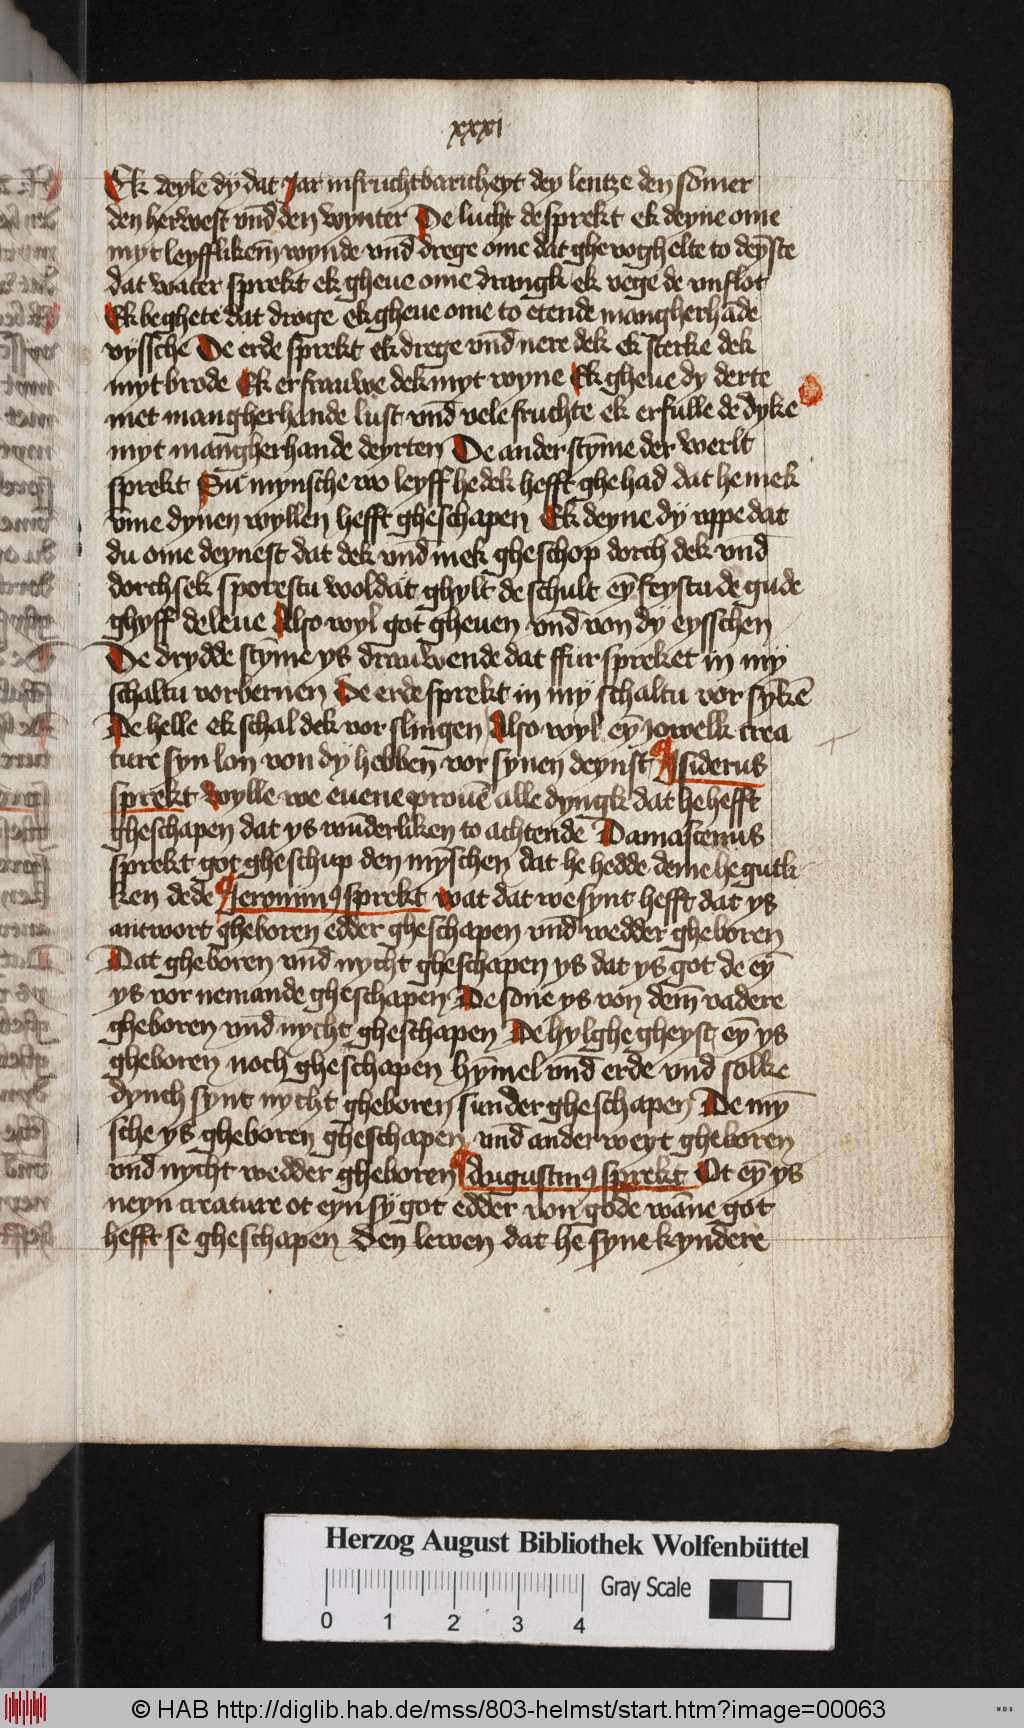 xxxi
Ek deyle dy dat Jar in fruchtbaricheyt dey lentze den som̄er
den herwest vnd̄ den wynter De lucht de sprekt ek deyne ome
myt leyfflikem̄ wynde vnd̄ drege ome dat ghevoghelte to deȳste
dat water sprekt ek gheue ome drangk ek vege de vnflot
Ek beghete dat droge ek gheue ome to etende mangherhāde
vyssche De erde sprekt ek drege vnd̄ nere dek ek sterke dek
myt brode Ek erfrauwe dek myt wyne Ek gheue dy derte
met mangherhande lust vnd̄ vele fruchte ek erfulle de dyke
myt mangherhande deyrten De ander stȳme der werlt
sprekt Su mynsche wo leyff he dek hefft ghehad dat he mek
vm̄e dynen wyllen hefft gheschapen Ek deyne dy vppe dat
du ome deynest dat dek vnd̄ mek gheschop dorch dek vnd̄
dorch sek sporestu woldat ghylt de schult eȳfeystu de gude
ghyff de leue Also wyl got gheuen vnd̄ von dy eysschen
De drydde stȳme ys drauwende dat ffur spreket in my
schaltu vorbernen De erde sprekt in my schaltu vor sȳkē
De helle ek schal dek vor slingen Also wyl eȳ jowelk crea
ture syn lon von dy hebben vor synen deynst Isiderus
sprekt wylle we euene prouē alle dyngk dat he hefft
gheschapen dat ys wūderliken to achtende Damascenus
sprekt got gheschup den mȳschen dat he hedde deme he gutk
ken dede Jeronim9 sprekt wat dat we synt hefft dat ys
antwort gheboren edder gheschapen vnd̄ wedder gheboren
Dat gheboren vnd̄ nycht gheschapen ys dat ys got de eȳ
ys vor nemande gheschapen De sone ys von dem̄ vadere
gheboren vnd̄ nycht gheschapen De hylghe gheyst eȳ ys
gheboren noch gheschapen hȳmel vnd̄ erde vnd solke
dynch synt nycht gheboren sunder gheschapen De mȳ
sche ys gheboren gheschapen vnd̄ anderweyt gheboren
vnd̄ nycht wedder gheboren Augustin9 sprekt Ot eȳ ys
neyn creature ot eyn sy got edder von gode wāne got
hefft se gheschapen Den lewen dat he syne kyndere
Herzog August Bibliothek Wolfenbüttel
0 1 2 3 4
Gray Scale
© HAB http://diglib.hab.de/mss/803-helmst/start.htm?image=00063